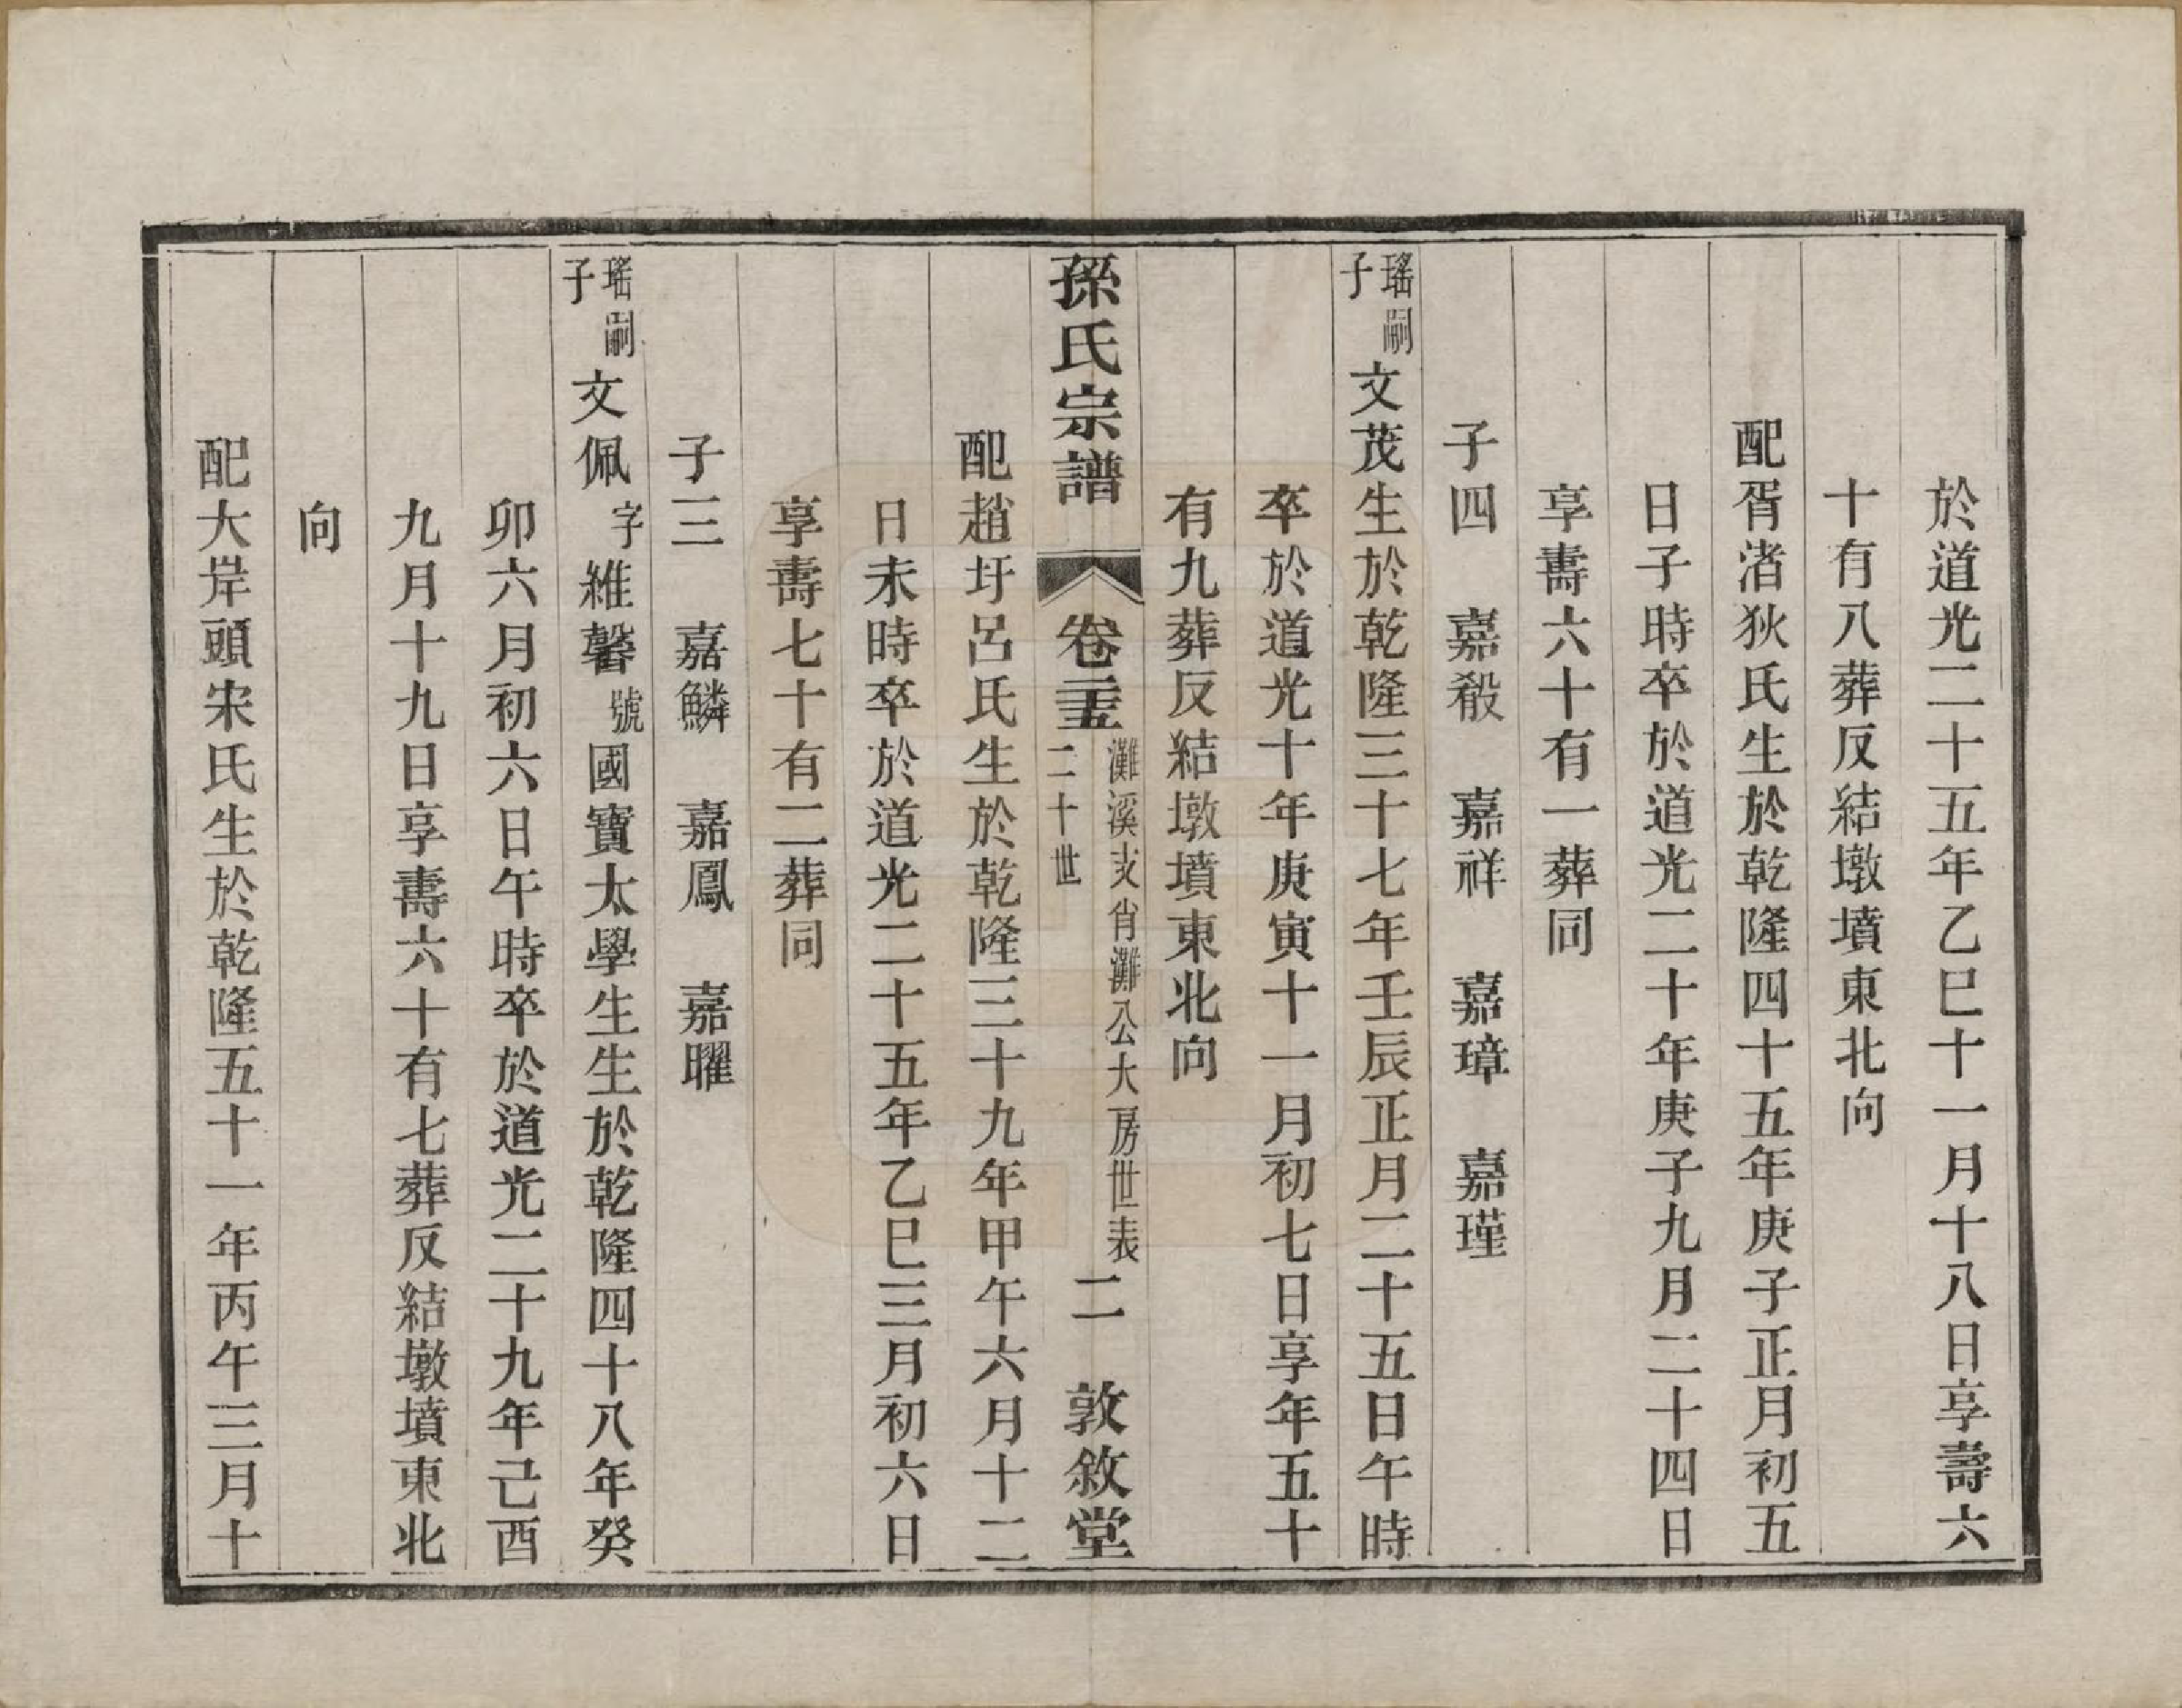 於道光二十五年乙巳十一月十八日享壽六
十有八葬反結墩墳東北向
配胥渚狄氏生於乾隆四十五年庚子正月初五
日子時卒於道光二十年庚子九月二十四日
享壽六十有一葬同
子四　嘉殺　嘉祥　嘉璋　嘉瑾
瑤嗣子文茂生於乾隆三十七年壬辰正月二十五日午時
卒於道光十年庚寅十一月初七日享年五十
有九葬反結墩墳東北向
孫氏宗譜　卷二十五　灘溪支肖灘公大房世表　二十世　二　敦敘堂
配趙圩呂氏生於乾隆三十九年甲午六月十二
日未時卒於道光二十五年乙巳三月初六日
享壽七十有二葬同
子三　嘉鱗　嘉鳳　嘉曜
瑤嗣子文佩字維馨號國寶太學生生於乾隆四十八年癸
卯六月初六日午時卒於道光二十九年己酉
九月十九日享壽六十有七葬反結墩墳東北
向
配大岸頭宋氏生於乾隆五十一年丙午三月十